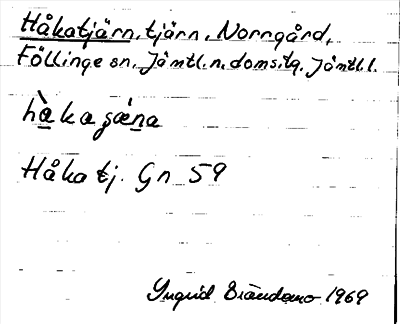 Håkatjärn, tjärn, Norrgård,
Föllinge sn, Jämtl. n. domsaga, Jämtl. l.
hà̱kaʒǽṉa
Håka tj. Gn 59
Ingrid Brändemo 1969